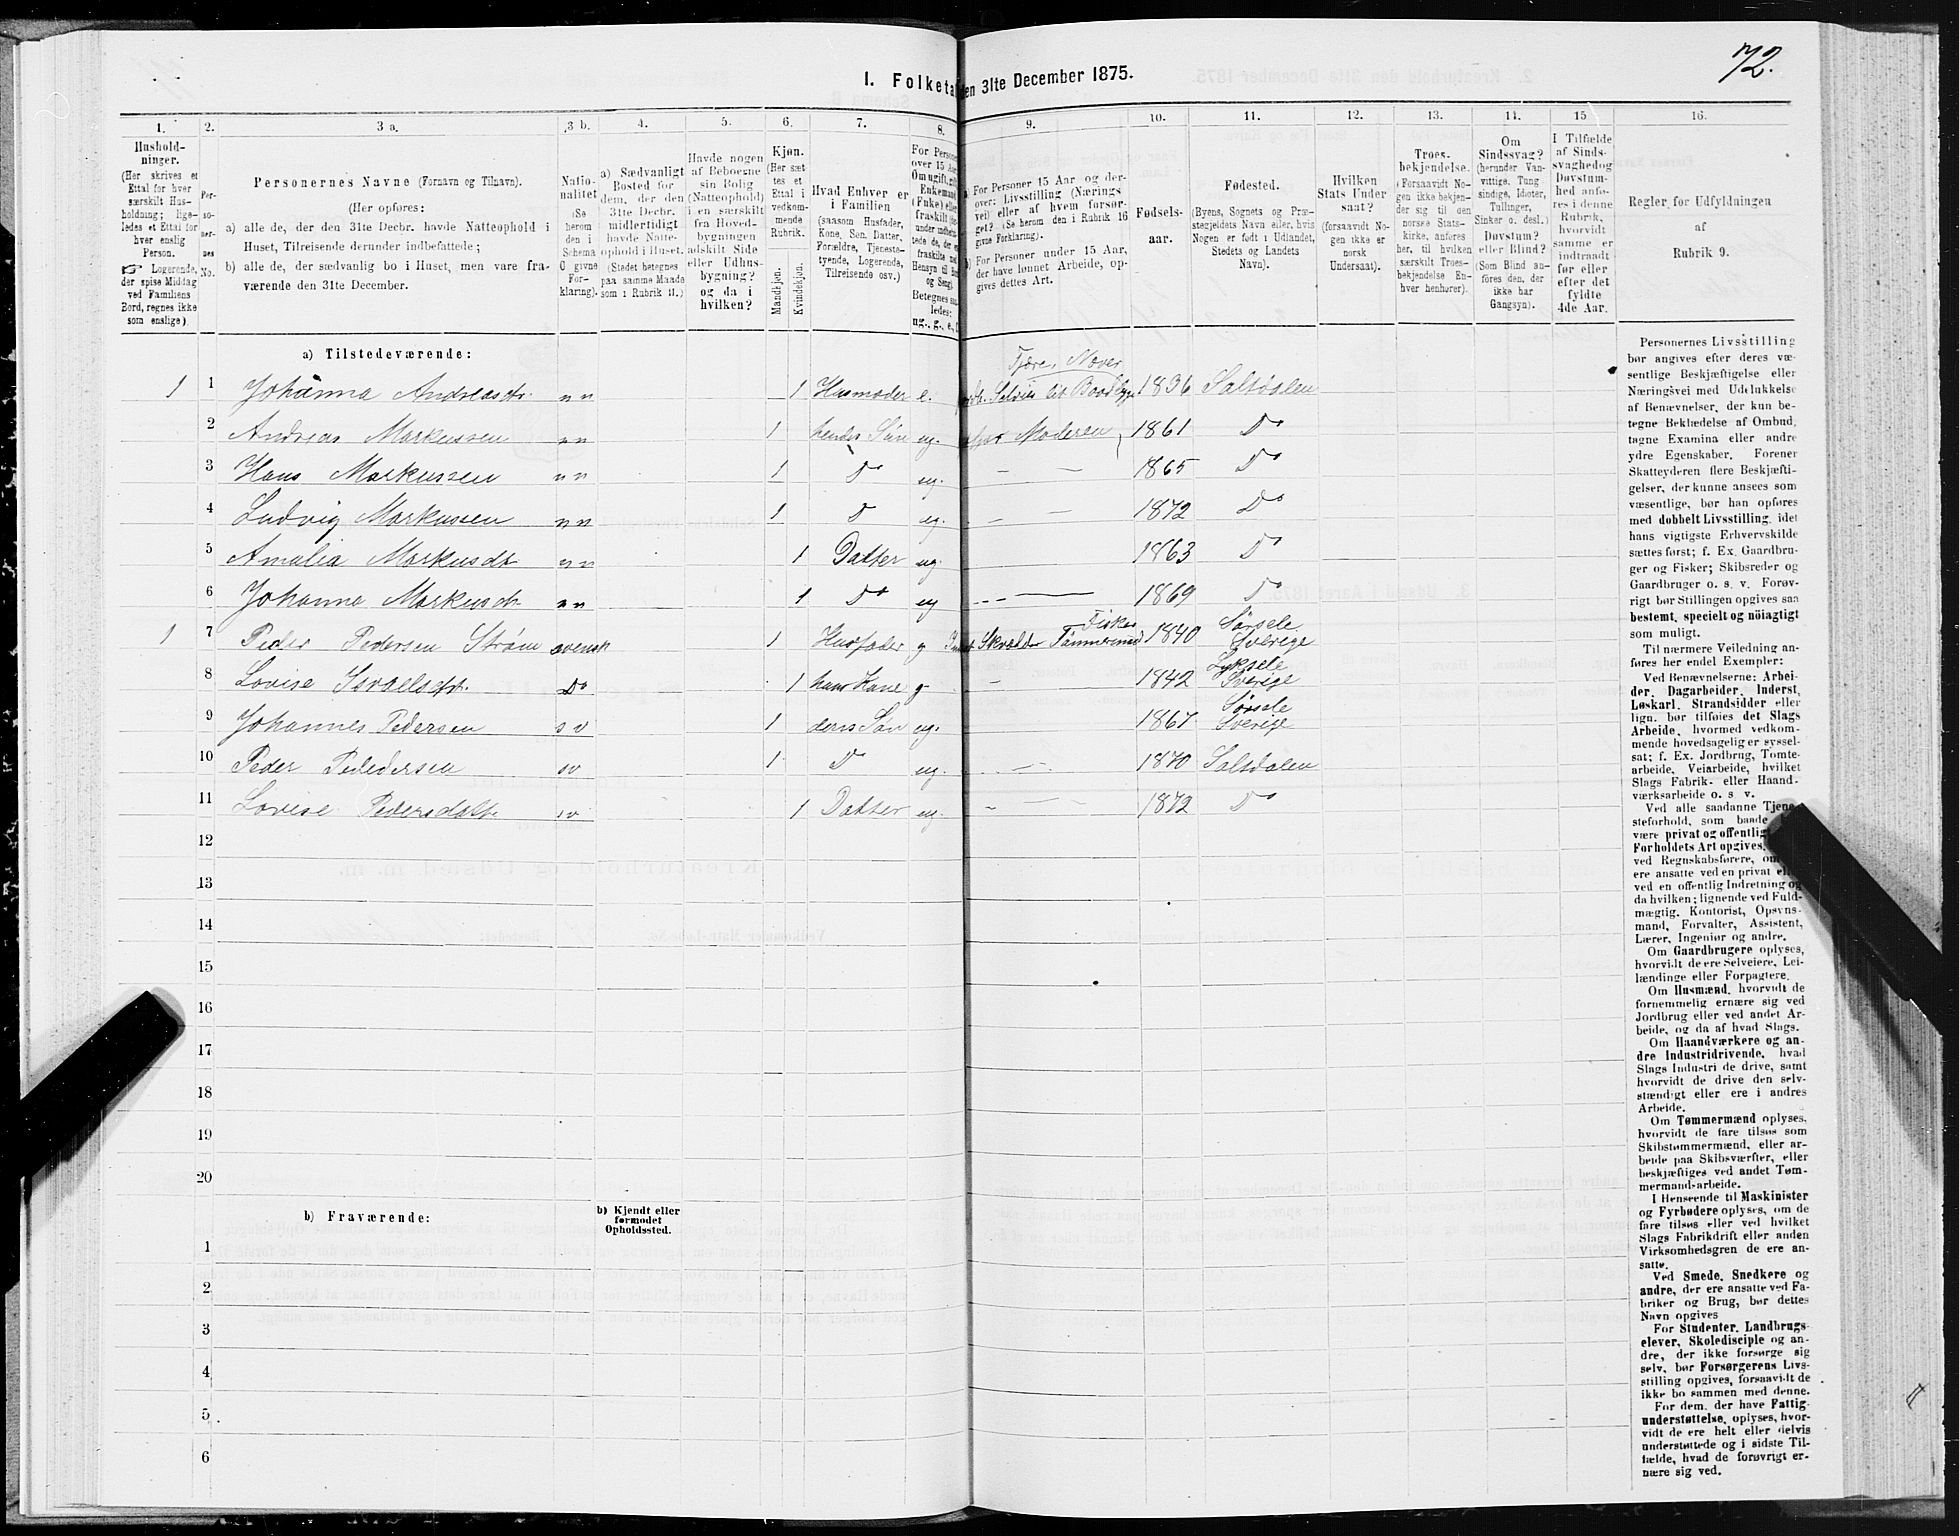 72.
I. Folketal den 31te December 1875.
1. 2. 3 a. 3 b. 4. 5. 6. 7. 8. 9. 10. 11. 12. 13. 14. 15 16.
Hushold-
ninger.
(Her skrives et
Ettal for hver
særskilt Hus-
holdning; lige-
ledes et Ettal for
hver enslig
Person.
☞ Logerende,
der spise Middag
ved Familiens
Bord, regnes ikke
som enslige)
Per-
so-
ner-
nes
No.
Personernes Navne (Fornavn og Tilnavn).
(Her opføres:
a) alle de, der den 31te Decbr. havde Natteophold i
Huset, Tilreisende derunder indbefattede;
b) alle de, der sædvanlig bo i Huset, men vare fra-
værende den 31te December.
Natio-
nalitet
(Se
herom
den i
Schema
0 givne
For-
klaring).
a) Sædvanligt
Bosted for
dem, der den
31te Decbr.
midlertidigt
havde Natte-
ophold i Huset.
(Stedet betegnes
paa samme Maade
som i Rubrik 11.)
Havde nogen
af Beboerne
sin Bolig
(Natteophold)
i en særskilt
fra Hoved-
bygningen
adskilt Side
eller Udhus-
bygning?
og da i
hvilken?
Kjøn.
(Her sæt-
tes et
Ettal i
vedkom-
mende
Rubrik.
Mandkjøn.
Kvindekjøn.
Hvad Enhver er
i Familien
(saasom Husfader,
Kone, Søn, Datter,
Forældre, Tjeneste-
tyende, Logerende,
Tilreisende osv.)
For Person
over 15 Aar
Om ugift, gift
Enkemand
(Enke) eller
fraskilt
Betegnes
ledes:
ug., g., e.,
a) For Personer 15 Aar og der-
over: Livsstilling (Nærings
vei) eller af hvem forsør-
get? (Se herom den i Rubrik 16
givne Forklaring).
b) For Personer under 15 Aar,
der have lønnet Arbeide, op-
gives dettes Art.
Fødsels-
aar.
Fødested.
(Byens, Sognets og Præ-
stegjeldets Navn eller, hvis
Nogen er født i Udlandet,
Stedets og Landets
Navn).
Hvilken
Stats Under
saat?
(forsaavidt No-
gen ikke er
norsk
Undersaat).
Troes-
bekjendelse.
(Forsaavidt No-
gen ikke bekjen-
der sig til den
norske Stats-
kirke, anføres
her, til hvilken
særskilt Troes-
bekjendelse En-
hver henhører).
Om
Sindssvag?
(herunder Van-
vittige, Tung
sindige, Idioter,
Tullinger,
Sinker o. desl.)
Døvstum?
eller Blind?
(Som Blind an-
føres den, der
ikke har
Gangsyn).
I Tilfælde
af Sinds-
svaghed og
Døvstum-
hed anfø-
res i denne
Rubrik,
hvorvidt
samme er
indtraadt
før eller
efter det
fyldte
4de Aar.
Regler for Udfyldningen
af
Rubrik 9.
a) Tilstedeværende:
1 1 Johanna Andreasdtr. n n 1 Husmoder e. 1836 Saltdalen
2 Andreas Markussen n n 1 hendes Søn ug. Moderen 1861 Do
3 Hans Markussen n n 1 Do ug. — — 1865 Do
4 Ludvig Markussen n n 1 D ug. — — 1872 Do
5 Amalia Markusdt n n 1 Datter ug. 1863 Do
6 Johanna Markusdt n n 1 Do ug — — 1869 Do
1 7 Peder Pedersen Strøm svensk 1 Husfader g Fisker 1840 Sørsele Sverige
8 Lovise Israelsdtr. Do 1 hans Kone g. — 1842 Lyksele Sverige
9 Johannes Pedersen s v 1 deres Søn ug. 1867 Sørsele Sverige
10 Peder Pededersen sv 1 Do ug. — — 1870 Saltdalen
11 Lovise Pedersdatt. sv 1 Datter ug. — — 1872 Do
12
13
14
15
16
17
18
19
20
b) Fraværende:
b) Kjendt eller
formodet
Opholdssted.
1
2
3
4
5
6
Personernes Livsstilling
bør angives efter deres væ-
sentlige Beskjæftigelse eller
Næringsvei med Udelukkelse
af Benævnelser, der kun be-
tegne Beklædelse af Ombud,
tagne Examina eller andre
ydre Egenskaber. Forener
Skatteyderen flere Beskjæfti-
gelser, der kunne ansees som
væsentlige, bør han opføres
med dobbelt Livsstilling, idet
hans vigtigste Erhvervskilde
sættes først; f. Ex. Gaardbru-
ger og Fisker; Skibsreder og
Gaardbruger o. s. v. Forøv-
rigt bør Stillingen opgives saa
bestemt, specielt og nöiagtigt
som muligt.
Til nærmere Veiledning an-
føres her endel Exempler:
Ved Benævnelserne: Arbei-
der, Dagarbeider, Inderst,
Løskarl, Strandsidder eller
lign. bør tilføies det Slags
Arbeide, hvormed vedkom-
mende hovedsagelig er syssel-
sat; f. Ex. Jordbrug, Tomte-
arbeide, Veiarbeide, hvilket
Slags Fabrik- eller Haand-
værksarbeide o. s. v.
Ved alle saadanne Tjene-
steforhold, som baade
være privat og offentlig
Forholdets Art opgives,
ved Regnskabsførere, om
ere ansatte ved en privat el
ved en offentlig Indretning og
da hvilken; lignende ved Fuld-
mægtig, Kontorist, Opsyns-
mand, Forvalter, Assistent,
Lærer, Ingeniør og andre.
Om Gaardbrugere oplyses,
hvorvidt de ere Selveiere, Lei-
lændinge eller Forpagtere.
Om Husmænd, hvorvidt de
fornemmelig ernære sig ved
Jordbrug eller ved andet Ar-
beide, og da af hvad Slags.
Om Haandværkere og an-
dre Industridrivende, hvad
Slags Industri de drive, samt
hvorvidt de drive den selv-
stændigt eller ere i andres
Arbeide.
Om Tømmermænd oplyses,
hvorvidt de fare tilsøs som
Skibstømmermænd, eller ar-
beide paa Skibsværfter, eller
beskjæftiges ved andet Tøm-
mermand-arbeide.
I Henseende til Maskinister
og Fyrbødere oplyses, om de
fare tilsøs eller ved hvilket
Slags Fabrikdrift eller anden
Virksomhedsgren de ere an-
satte.
Ved Smede, Snedkere og
andre, der ere ansatte ved Fa-
briker og Brug, bør dettes
Navn opgives
For Studenter, Landbrugs-
elever, Skoledisciple og an-
dre, der ikke forsørge sig
selv, bør Forsørgerens Livs-
stilling opgives, forsaavidt de
ikke bo sammen med denne.
For dem, der have Fattig-
understøttelse, oplyses, hvor-
vidt de ere helt eller delvis
understøttede og i sidste Til-
fælde, hvad de forøvrigt er-
nære sig ved.